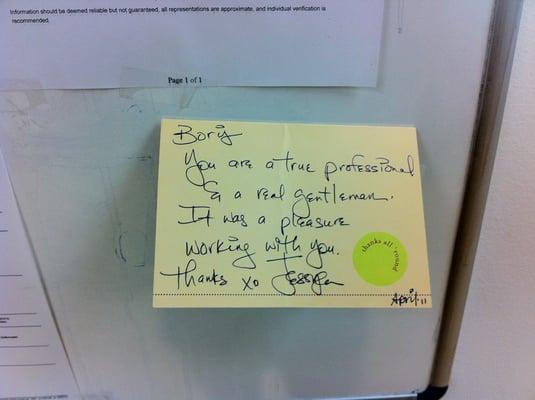 Information should be deemed reliable but not guaranteed, all representations are approximate, and individual verification is
recommended.
Page 1 of 1
Boris
You are a true professional
& a real gentleman.
It was a pleasure
working with you.
Thanks xo
thanks all 'round
April '11